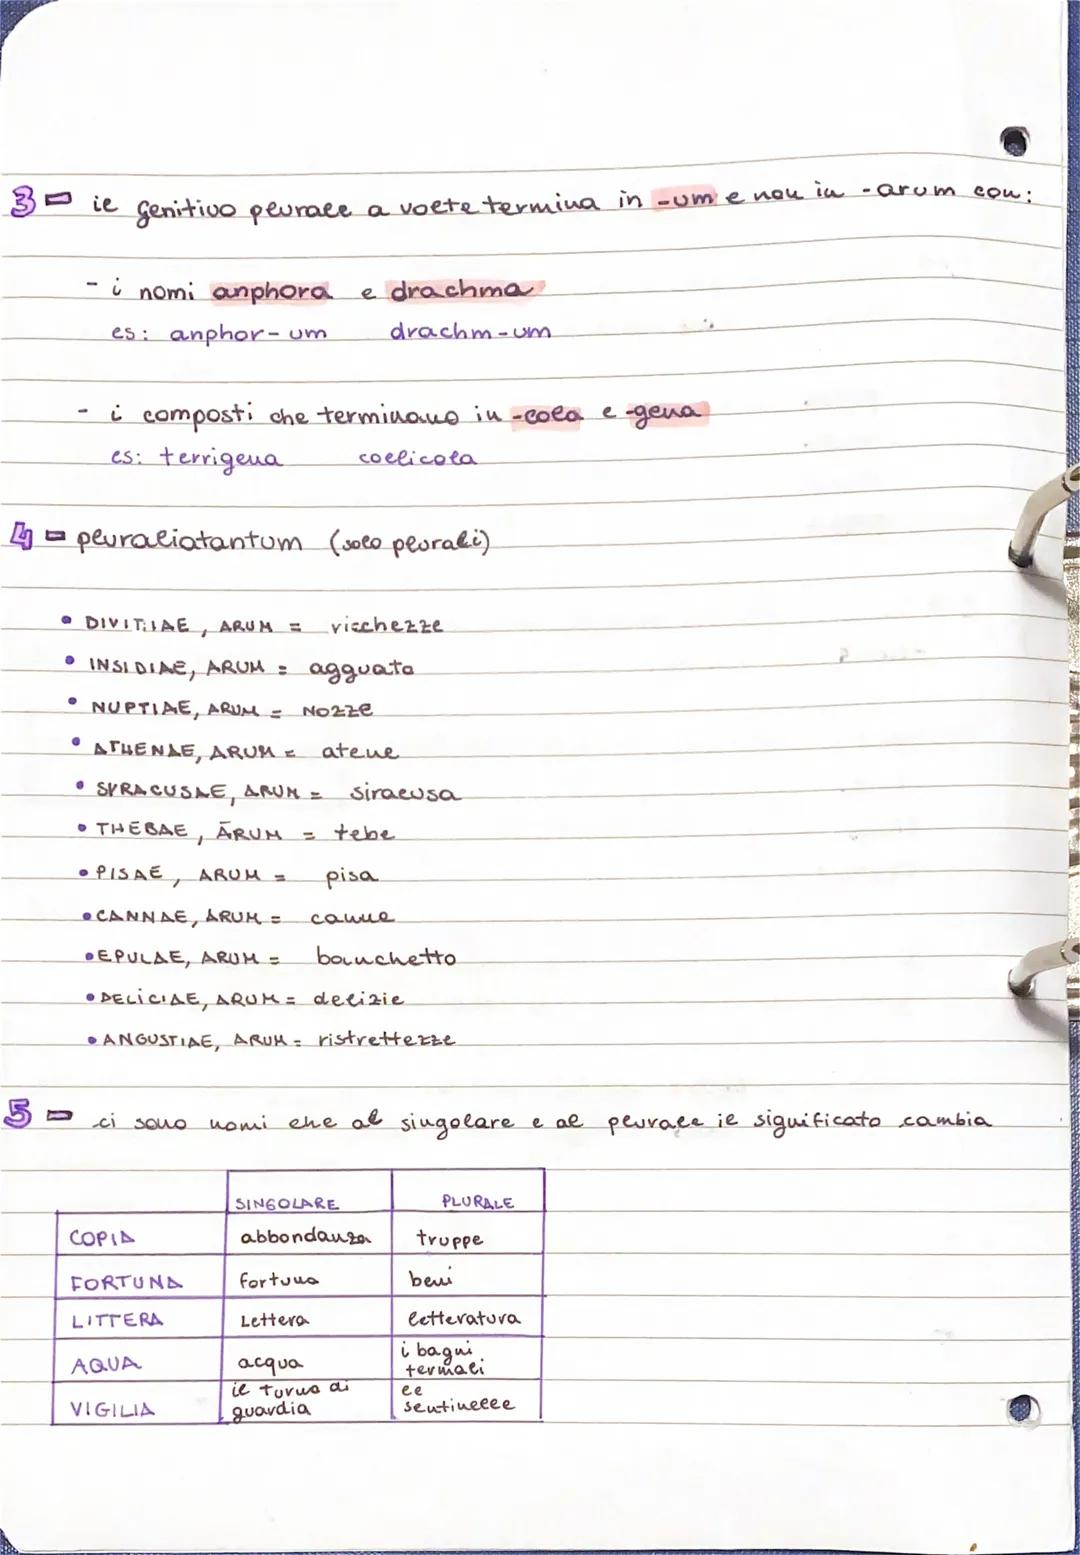 3 - il genitivo plurale a volte termina in -um e non in -arum con:
- i nomi anphora e drachma
es: anphor-um drachm-um
- i composti che terminano in -cola e -gena
es: terrigena coelicola
4 - pluraliatantum (solo plurali)
• DIVITIAE, ARUM = ricchezze
• INSIDIAE, ARUM = agguato
• NUPTIAE, ARUM = NOZZE
• ATHENAE, ARUM = atene
• SYRACUSAE, ARUM = siracusa
• THEBAE, ĀRUM = tebe
• PISAE, ARUM = pisa
• CANNAE, ARUM = canne
• EPULAE, ARUM = banchetto
• DELICIAE, ARUM = delizie
• ANGUSTIAE, ARUM = ristrettezze
5 - ci sono nomi che al singolare e al plurale il significato cambia
SINGOLARE PLURALE
COPIA abbondanza truppe
FORTUNA fortuna beni
LITTERA Lettera letteratura
AQUA acqua i bagni termali
VIGILIA il turno di guardia le sentinelle